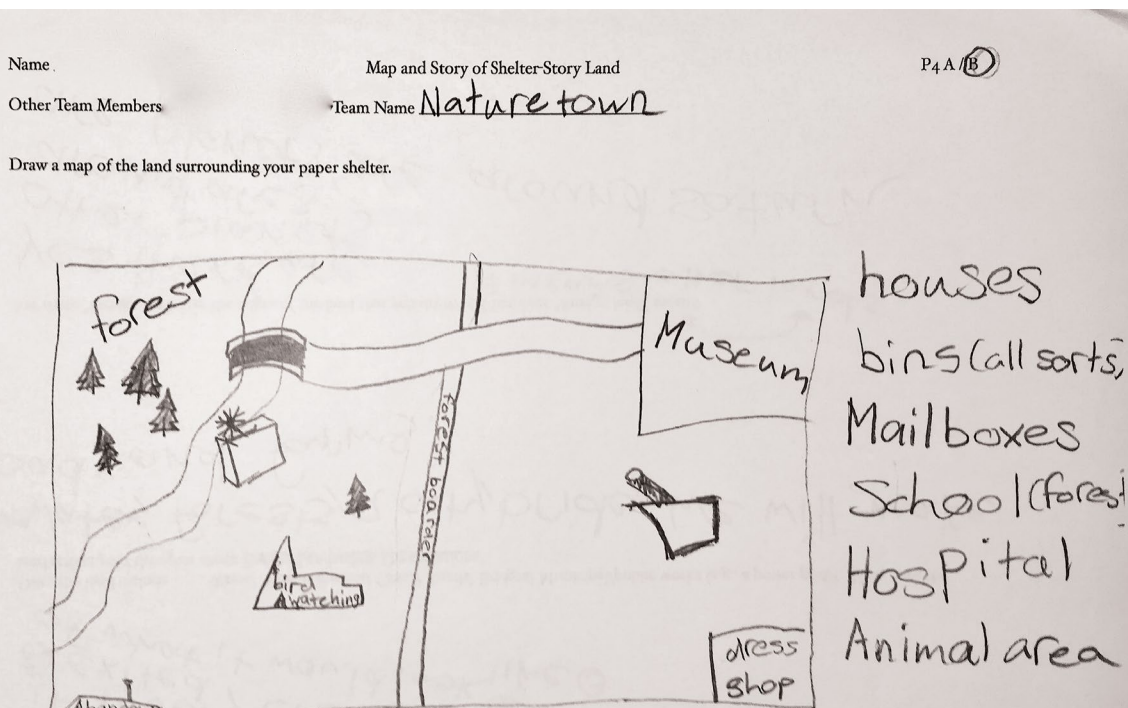 Name
Map and Story of Shelter-Story Land
P4 A/B
Other Team Members
Team Name Nature town
Draw a map of the land surrounding your paper shelter.
forest
Museum
forest boarder
bird
watching
dress
shop
houses
bins (all sorts)
Mailboxes
School (forest
Hospital
Animal area